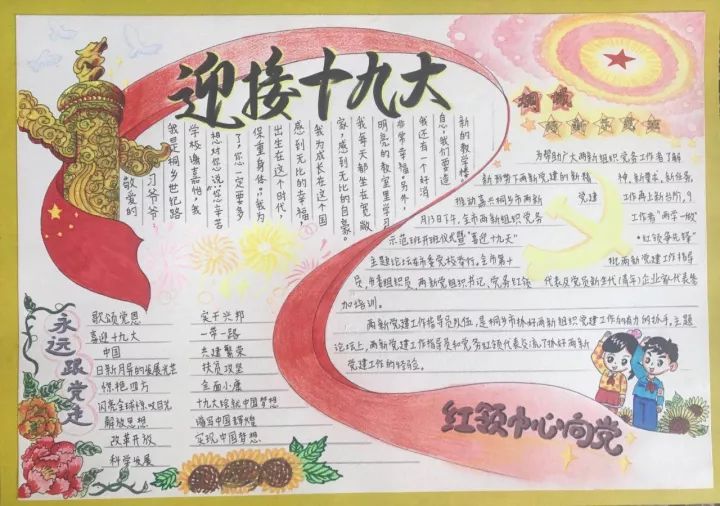 迎接十九大
敬爱的习爷爷
我是桐乡世纪路
学校谢嘉怡,我
想对你说:你辛苦
了,你一定要多
保重身体。我为
出生在这个时代,
感到无比的幸福,
我为成长在这个国
家,感到无比的自豪。
我每天都坐在宽敞
明亮的教室里学习
非常幸福,另外,
我还有一个好消
息,我们要造
新的教学楼。
永远跟党走
歌颂党恩
喜迎十九大
中国
日新月异的发展光芒
惊艳四方
闪亮全球惊叹目光
解放思想
改革开放
科学发展
实干兴邦
一带一路
共建繁荣
扶贫攻坚
全面小康
十九大绘就中国梦想
谱写中国辉煌
实现中国梦想
为帮助广大两新组织党务工作者了解
新形势下两新党建的新精神,新要求,新任务,
推动嘉兴桐乡市两新党建工作再上新台阶,9
月13日下午,全市两新组织党务工作者“两学一做”
示范班开班仪式暨“喜迎十九大”“红领争先锋”
主题论坛在市委党校举行。全市第十批两新党建工作指导
员,市委组织员,两新党组织书记,党务红领代表及党员新生代(青年)企业家代表参
加培训。
两新党建工作指导员队伍,是桐乡市抓好两新组织党建工作的有力的抓手,主题
论坛上,两新党建工作指导员和党务红领代表交流了抓好两新
党建工作的经验。
红领巾心向党